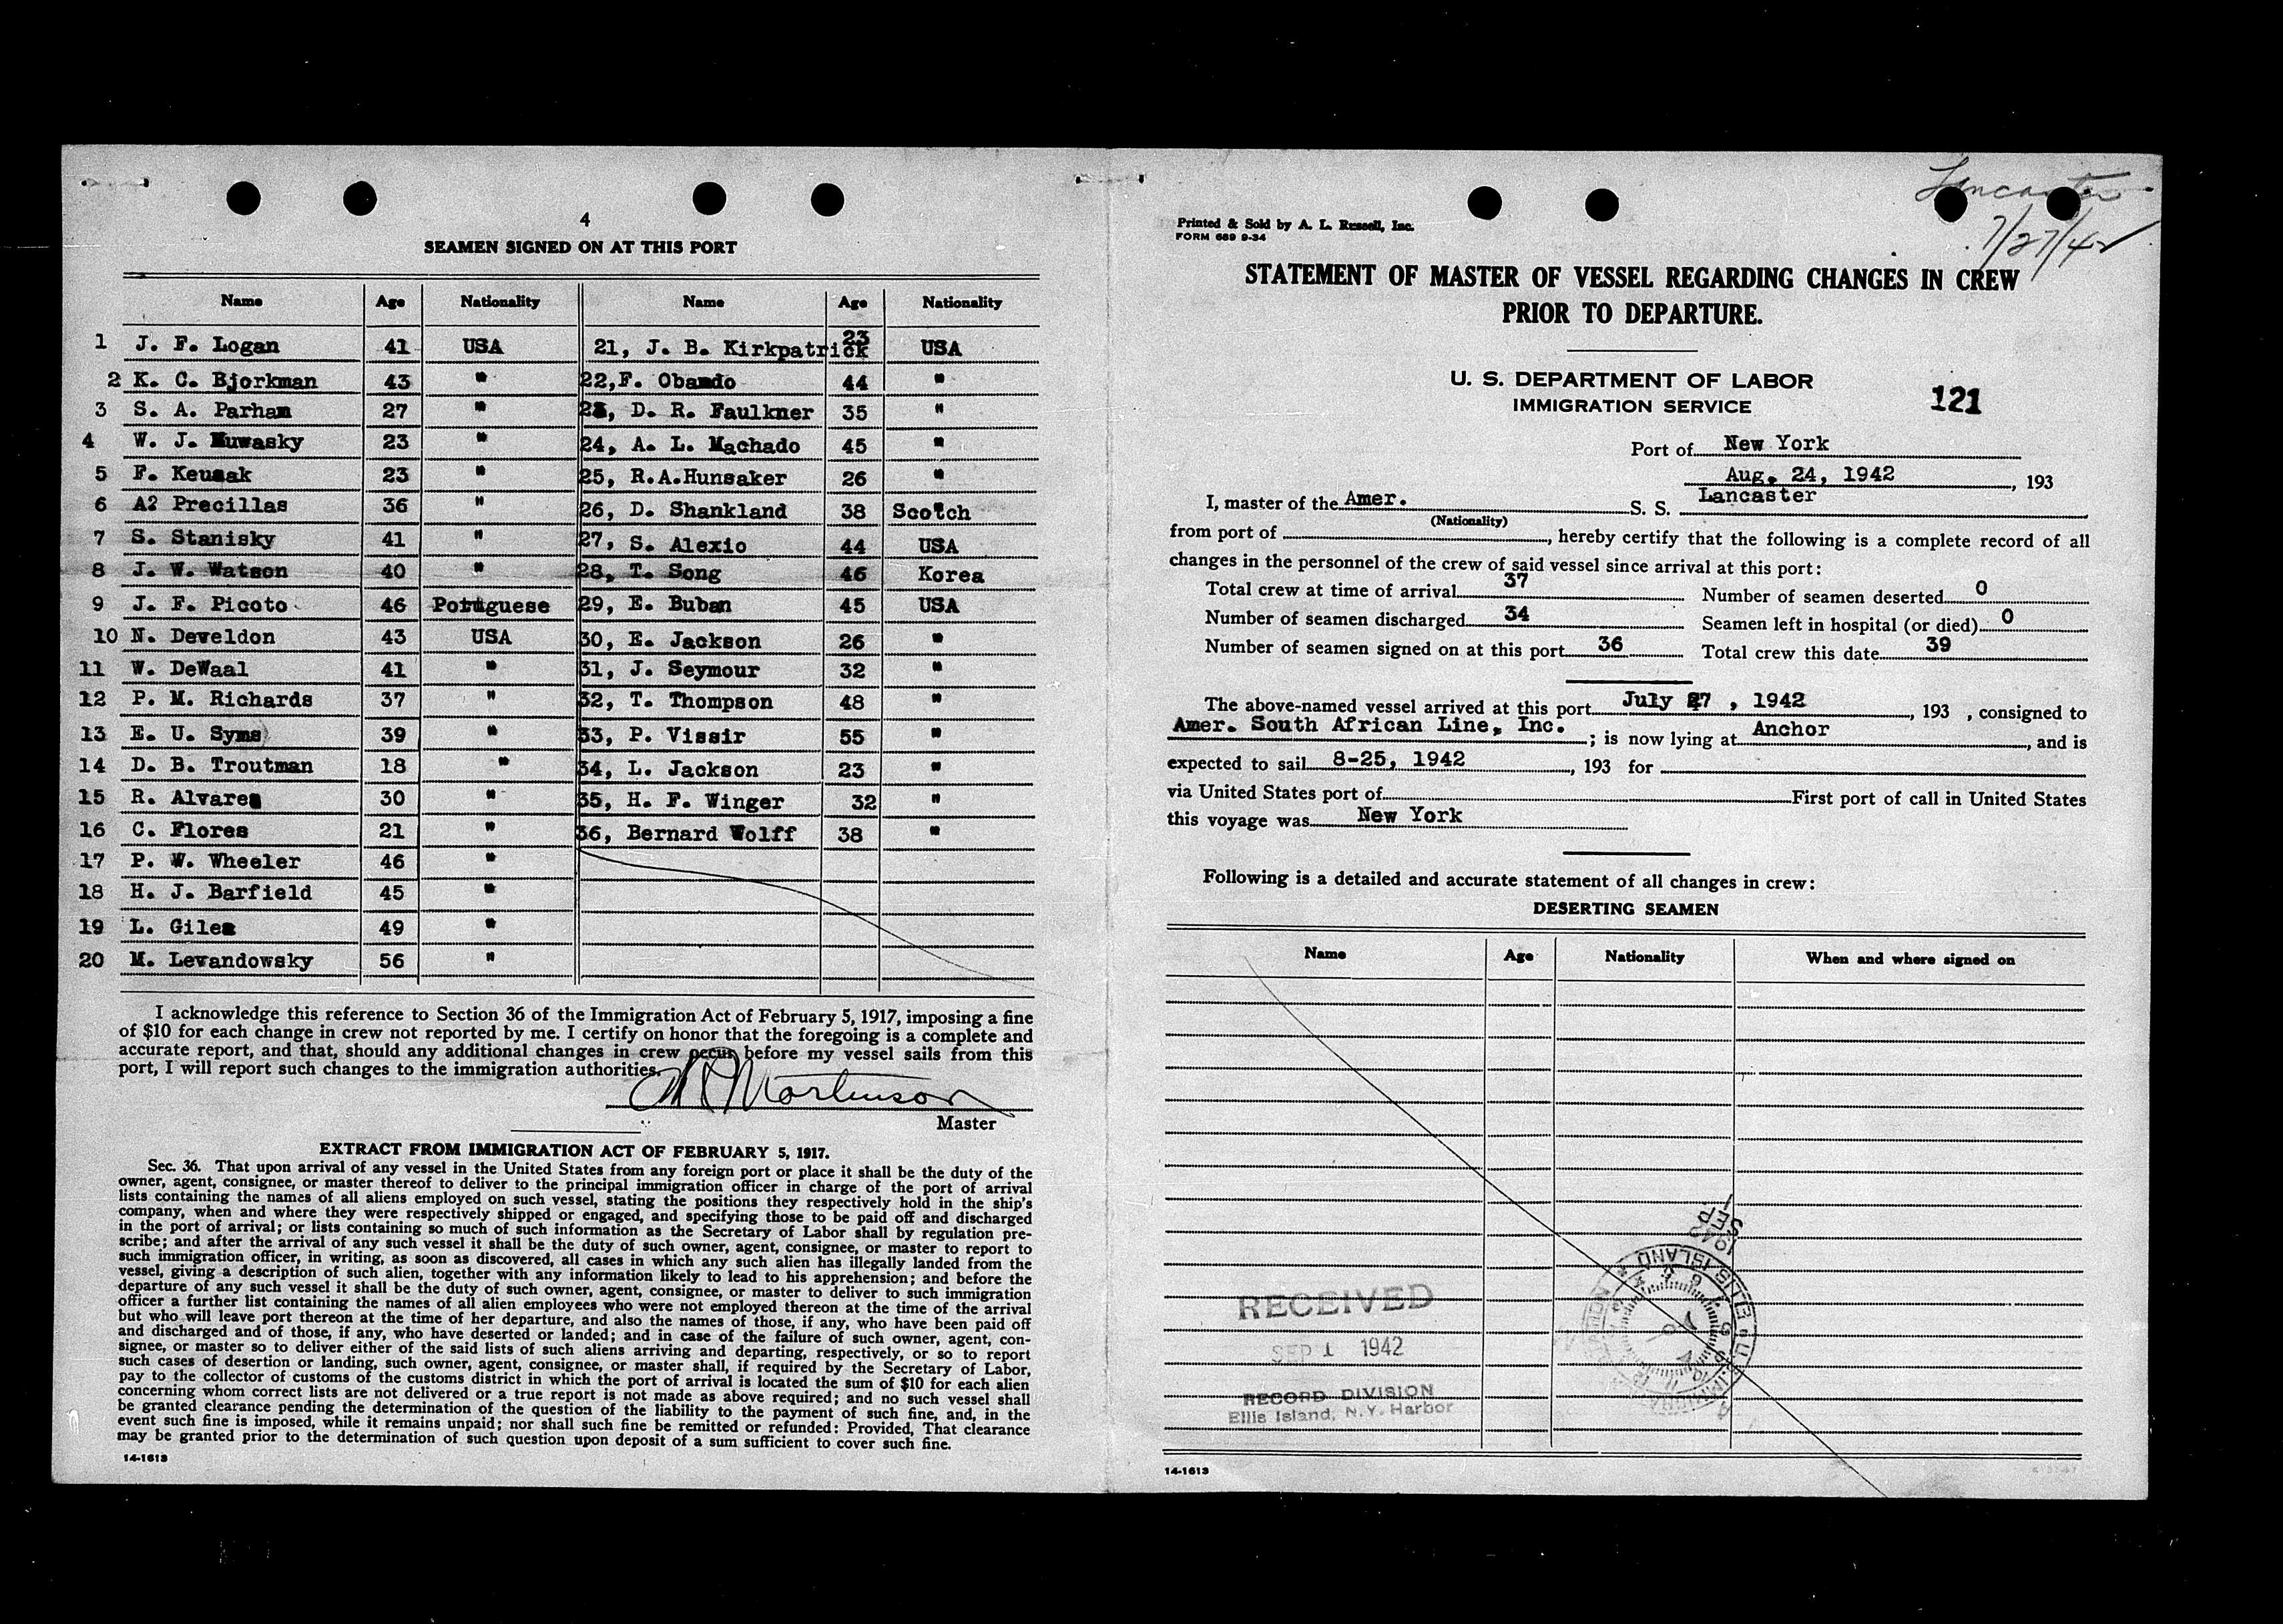 4
SEAMEN SIGNED ON AT THIS PORT
Name Age Nationality Name Age Nationality
1 J. F. Logan 41 USA 21, J. B. Kirkpatrick 23 USA
2 K. C. Bjorkman 43 " 22,F. Obando 44 "
3 S. A. Parham 27 " 23, D. R. Faulkner 35 "
4 W. J. Kuwasky 23 " 24, A. L. Machado 45 "
5 F. Keusak 23 " 25, R.A.Hunsaker 26 "
6 A? Precillas 36 " 26, D. Shankland 38 Scotch
7 S. Stanisky 41 " 27, S. Alexio 44 USA
8 J. W. Watson 40 " 28, T. Song 46 Korea
9 J. F. Picoto 46 Portuguese 29, E. Buban 45 USA
10 N. Develdon 43 USA 30, E. Jackson 26 "
11 W. DeWaal 41 " 31, J. Seymour 32 "
12 P. M. Richards 37 " 32, T. Thompson 48 "
13 E. U. Syms 39 " 33, P. Vissir 55 "
14 D. B. Troutman 18 " 34, L. Jackson 23 "
15 R. Alvares 30 " 35, H. F. Winger 32 "
16 C. Flores 21 " 36, Bernard Wolff 38 "
17 P. W. Wheeler 46 "
18 H. J. Barfield 45 "
19 L. Giles 49 "
20 M. Levandowsky 56 "
I acknowledge this reference to Section 36 of the Immigration Act of February 5, 1917, imposing a fine
of $10 for each change in crew not reported by me. I certify on honor that the foregoing is a complete and
accurate report, and that, should any additional changes in crew occur before my vessel sails from this
port, I will report such changes to the immigration authorities.
Martinson
Master
EXTRACT FROM IMMIGRATION ACT OF FEBRUARY 5, 1917.
Sec. 36. That upon arrival of any vessel in the United States from any foreign port or place it shall be the duty of the
owner, agent, consignee, or master thereof to deliver to the principal immigration officer in charge of the port of arrival
lists containing the names of all aliens employed on such vessel, stating the positions they respectively hold in the ship's
company, when and where they were respectively shipped or engaged, and specifying those to be paid off and discharged
in the port of arrival; or lists containing so much of such information as the Secretary of Labor shall by regulation pre-
scribe; and after the arrival of any such vessel it shall be the duty of such owner, agent, consignee, or master to report to
such immigration officer, in writing, as soon as discovered, all cases in which any such alien has illegally landed from the
vessel, giving a description of such alien, together with any information likely to lead to his apprehension; and before the
departure of any such vessel it shall be the duty of such owner, agent, consignee, or master to deliver to such immigration
officer a further list containing the names of all alien employees who were not employed thereon at the time of the arrival
but who will leave port thereon at the time of her departure, and also the names of those, if any, who have been paid off
and discharged and of those, if any, who have deserted or landed; and in case of the failure of such owner, agent, con-
signee, or master so to deliver either of the said lists of such aliens arriving and departing, respectively, or so to report
such cases of desertion or landing, such owner, agent, consignee, or master shall, if required by the Secretary of Labor,
pay to the collector of customs of the customs district in which the port of arrival is located the sum of $10 for each alien
concerning whom correct lists are not delivered or a true report is not made as above required; and no such vessel shall
be granted clearance pending the determination of the question of the liability to the payment of such fine, and, in the
event such fine is imposed, while it remains unpaid; nor shall such fine be remitted or refunded: Provided, That clearance
may be granted prior to the determination of such question upon deposit of a sum sufficient to cover such fine.
14-1613
Lancaster
7/27/42
Printed & Sold by A. L. Russell, Inc.
FORM 689 9-34
STATEMENT OF MASTER OF VESSEL REGARDING CHANGES IN CREW
PRIOR TO DEPARTURE.
U. S. DEPARTMENT OF LABOR
IMMIGRATION SERVICE
121
Port of New York
Aug. 24, 1942, 193
I, master of the Amer. S. S. Lancaster
(Nationality)
from port of , hereby certify that the following is a complete record of all
changes in the personnel of the crew of said vessel since arrival at this port:
Total crew at time of arrival 37 Number of seamen deserted 0
Number of seamen discharged 34 Seamen left in hospital (or died) 0
Number of seamen signed on at this port 36 Total crew this date 39
The above-named vessel arrived at this port July 27 , 1942, 193 , consigned to
Amer. South African Line, Inc. ; is now lying at Anchor, and is
expected to sail 8-25, 1942, 193 for
via United States port of First port of call in United States
this voyage was New York
Following is a detailed and accurate statement of all changes in crew:
DESERTING SEAMEN
Name Age Nationality When and where signed on
1942 SEP 1
ELLIS ISLAND
RECEIVED
SEP 1 1942
RECORD DIVISION
Ellis Island, N.Y. Harbor
14-1613